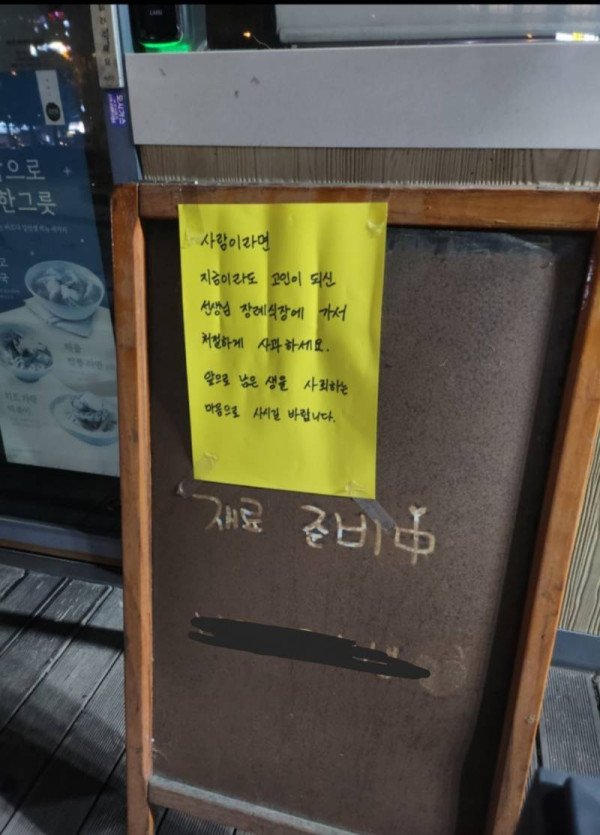 으로
한그릇
사람이라면
지금이라도 고인이 되신
선생님 장례식장에 가서
처절하게 사과하세요.
앞으로 남은 생을 사죄하는
마음으로 사시길 바랍니다.
재료 준비中